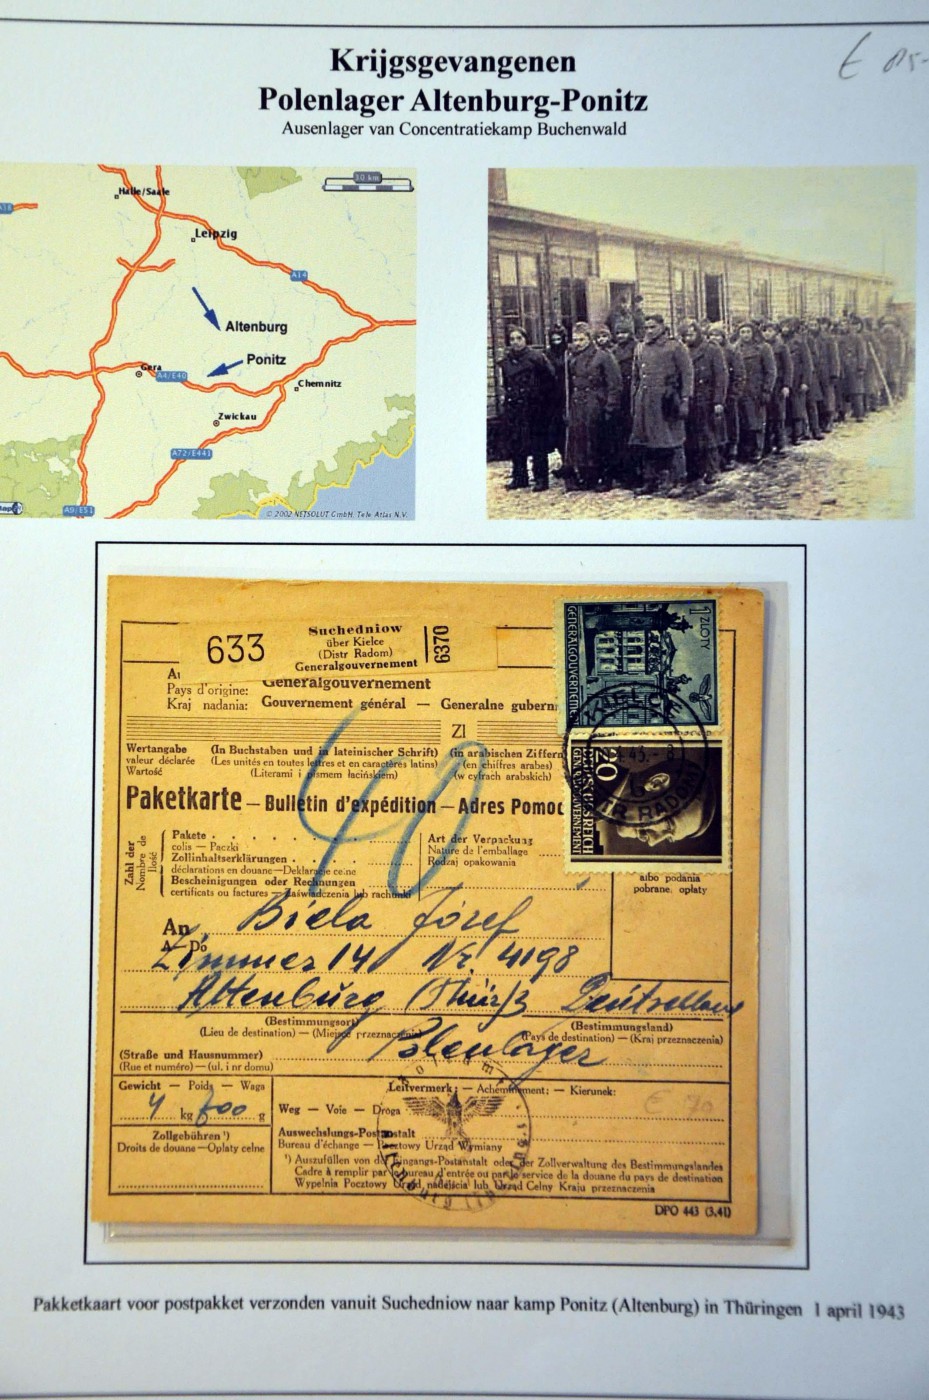 Krijgsgevangenen
Polenlager Altenburg-Ponitz
Ausenlager van Concentratiekamp Buchenwald
30 km
Halle/Saale
Leipzig
A14
Altenburg
Ponitz
Gera
A4/E40
Chemnitz
Zwickau
A72/E441
A9/E51
© 2002 NETSOLUT GmbH, Tele Atlas N.V.
633
Suchedniow
über Kielce
(Distr Radom)
Generalgouvernement
6370
1 ZLOTY
GENERALGOUVERNEMENT
Pays d'origine:
Kraj nadania:
Generalgouvernement
Gouvernement général — Generalne gubern
Zl
Wertangabe
valeur déclarée
Wartość
(In Buchstaben und in lateinischer Schrift)
(Les unités en toutes lettres et en caractères latins)
(Literami i pismem łacińskiem)
(in arabischen Ziffern
(en chiffres arabes)
(w cyfrach arabskich)
20
DEUTSCHES REICH
GENERALGOUVERNEMENT
40
Paketkarte — Bulletin d'expédition — Adres Pomoc
Zahl der
Nombre de
Ilość
Pakete
colis — Paczki
Zollinhaltserklärungen
déclarations en douane — Deklaracje celne
Bescheinigungen oder Rechnungen
certificats ou factures — Zaświadczenia lub rachunki
Art der Verpackung
Nature de l'emballage
Rodzaj opakowania
albo podania
pobrane. opłaty
An
A—Do
Biela Józef
Zimmer 14 Nr. 4198
Altenburg (Thür)
(Bestimmungsort)
(Lieu de destination) — (Miejsce przeznaczenia)
(Bestimmungsland)
(Pays de destination) — (Kraj przeznaczenia)
Polenlager
(Straße und Hausnummer)
(Rue et numéro) — (ul. i nr domu)
Gewicht — Poids — Waga
4 kg 700 g
Zollgebühren ¹)
Droits de douane — Opłaty celne
Leitvermerk: — Acheminement: — Kierunek:
Weg — Voie — Droga
Auswechslungs-Postanstalt
Bureau d'échange — Pocztowy Urząd Wymiany
¹) Auszufüllen von der Eingangs-Postanstalt oder der Zollverwaltung des Bestimmungslandes
Cadre à remplir par le bureau d'entrée ou par le service de la douane du pays de destination
Wypelnia Pocztowy Urząd nadejścia lub Urząd Celny Kraju przeznaczenia
DPO 443 (3.41)
€ 70
Pakketkaart voor postpakket verzonden vanuit Suchedniow naar kamp Ponitz (Altenburg) in Thüringen 1 april 1943